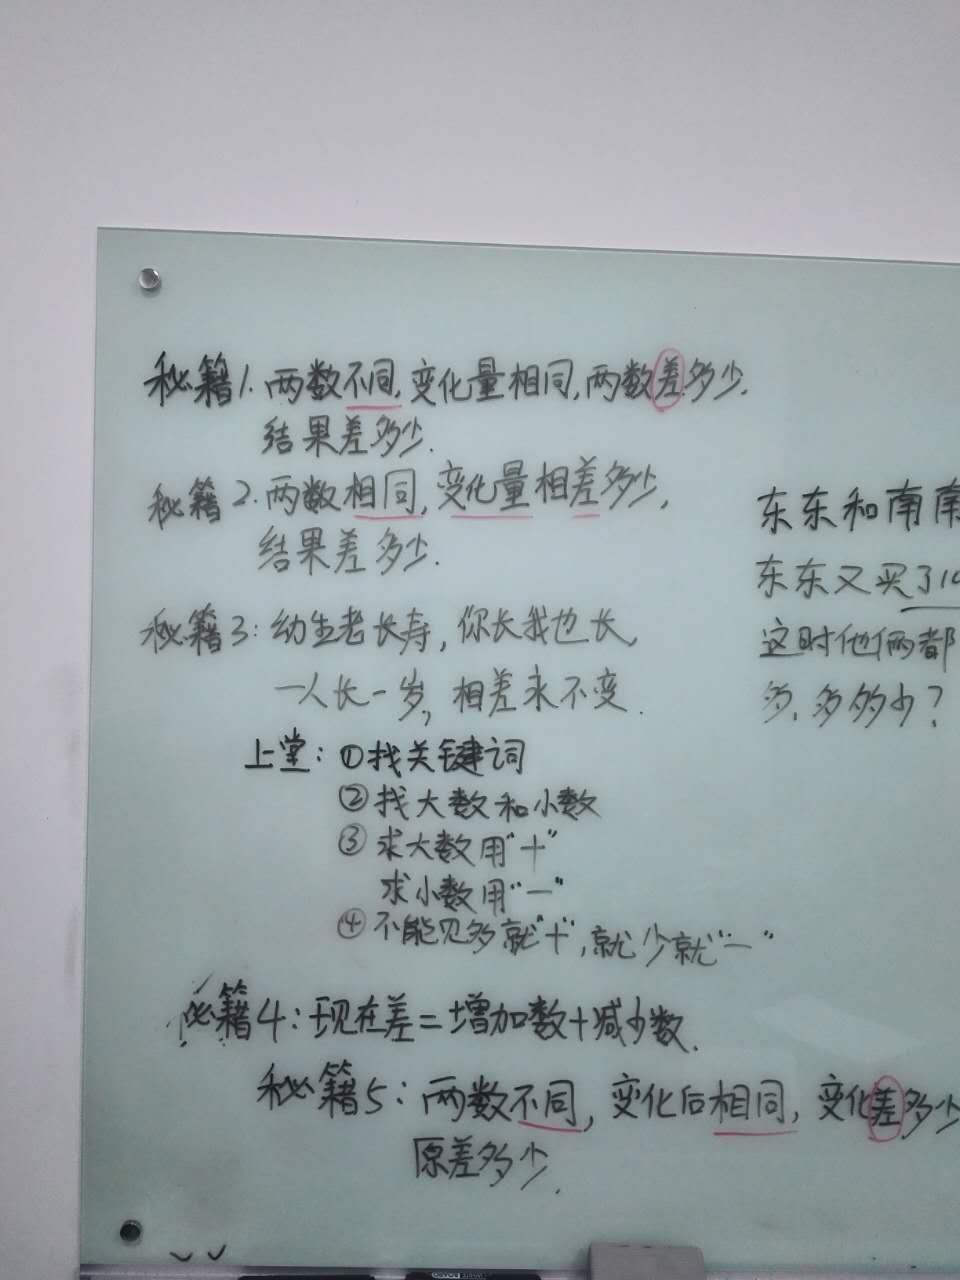 秘籍1.两数不同,变化量相同,两数差多少.
结果差多少.
秘籍2.两数相同,变化量相差多少,
结果差多少.
秘籍3:幼生老长寿,你长我也长,
一人长一岁,相差永不变.
上堂:①找关键词
②找大数和小数
③求大数用“+”
求小数用“一”
④不能见多就“+”,就少就“一”
秘籍4:现在差=增加数+减少数.
秘籍5:两数不同,变化后相同,变化差多少
原差多少.
东东和南南
东东又买了10
这时他俩都
多,多多少?